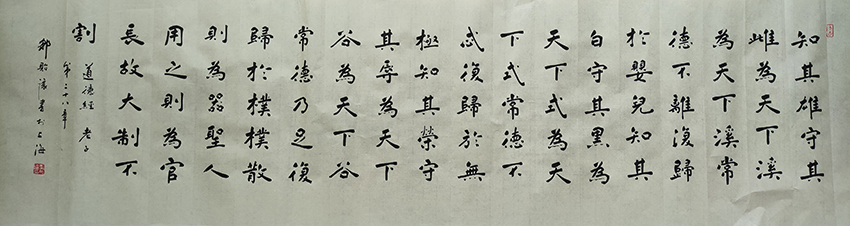 知其雄守其
雌為天下溪
為天下溪常
德不離復歸
於嬰兒知其
白守其黑為
天下式為天
下式常德不
忒復歸於無
極知其榮守
其辱為天下
谷為天下谷
常德乃足復
歸於樸樸散
則為器聖人
用之則為官
長故大制不
割
道德經 老子
第二十八章
書於上海